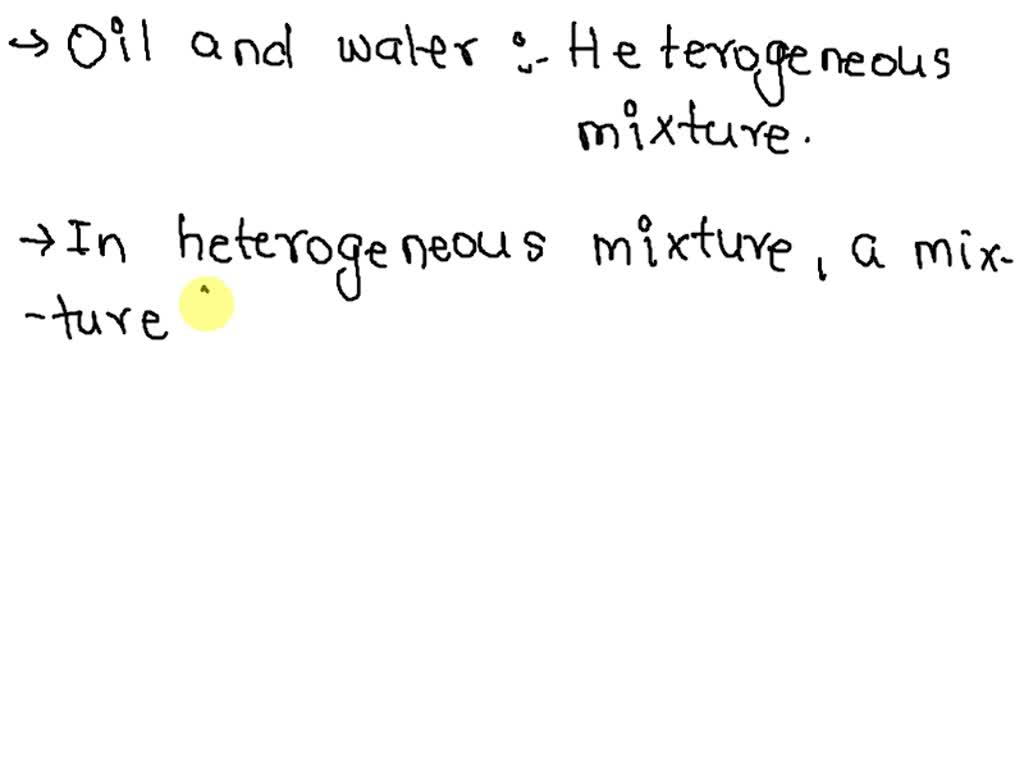 → Oil and water :- Heterogeneous
mixture.
→ In heterogeneous mixture, a mix-
-ture